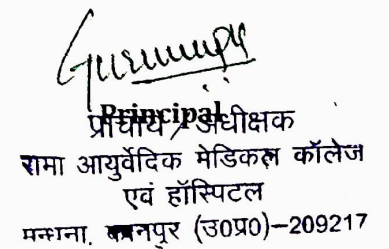 Principal
प्राचार्य / अधीक्षक
रामा आयुर्वेदिक मेडिकल कॉलेज
एवं हॉस्पिटल
मन्धना, कानपुर (उ0प्र0)–209217